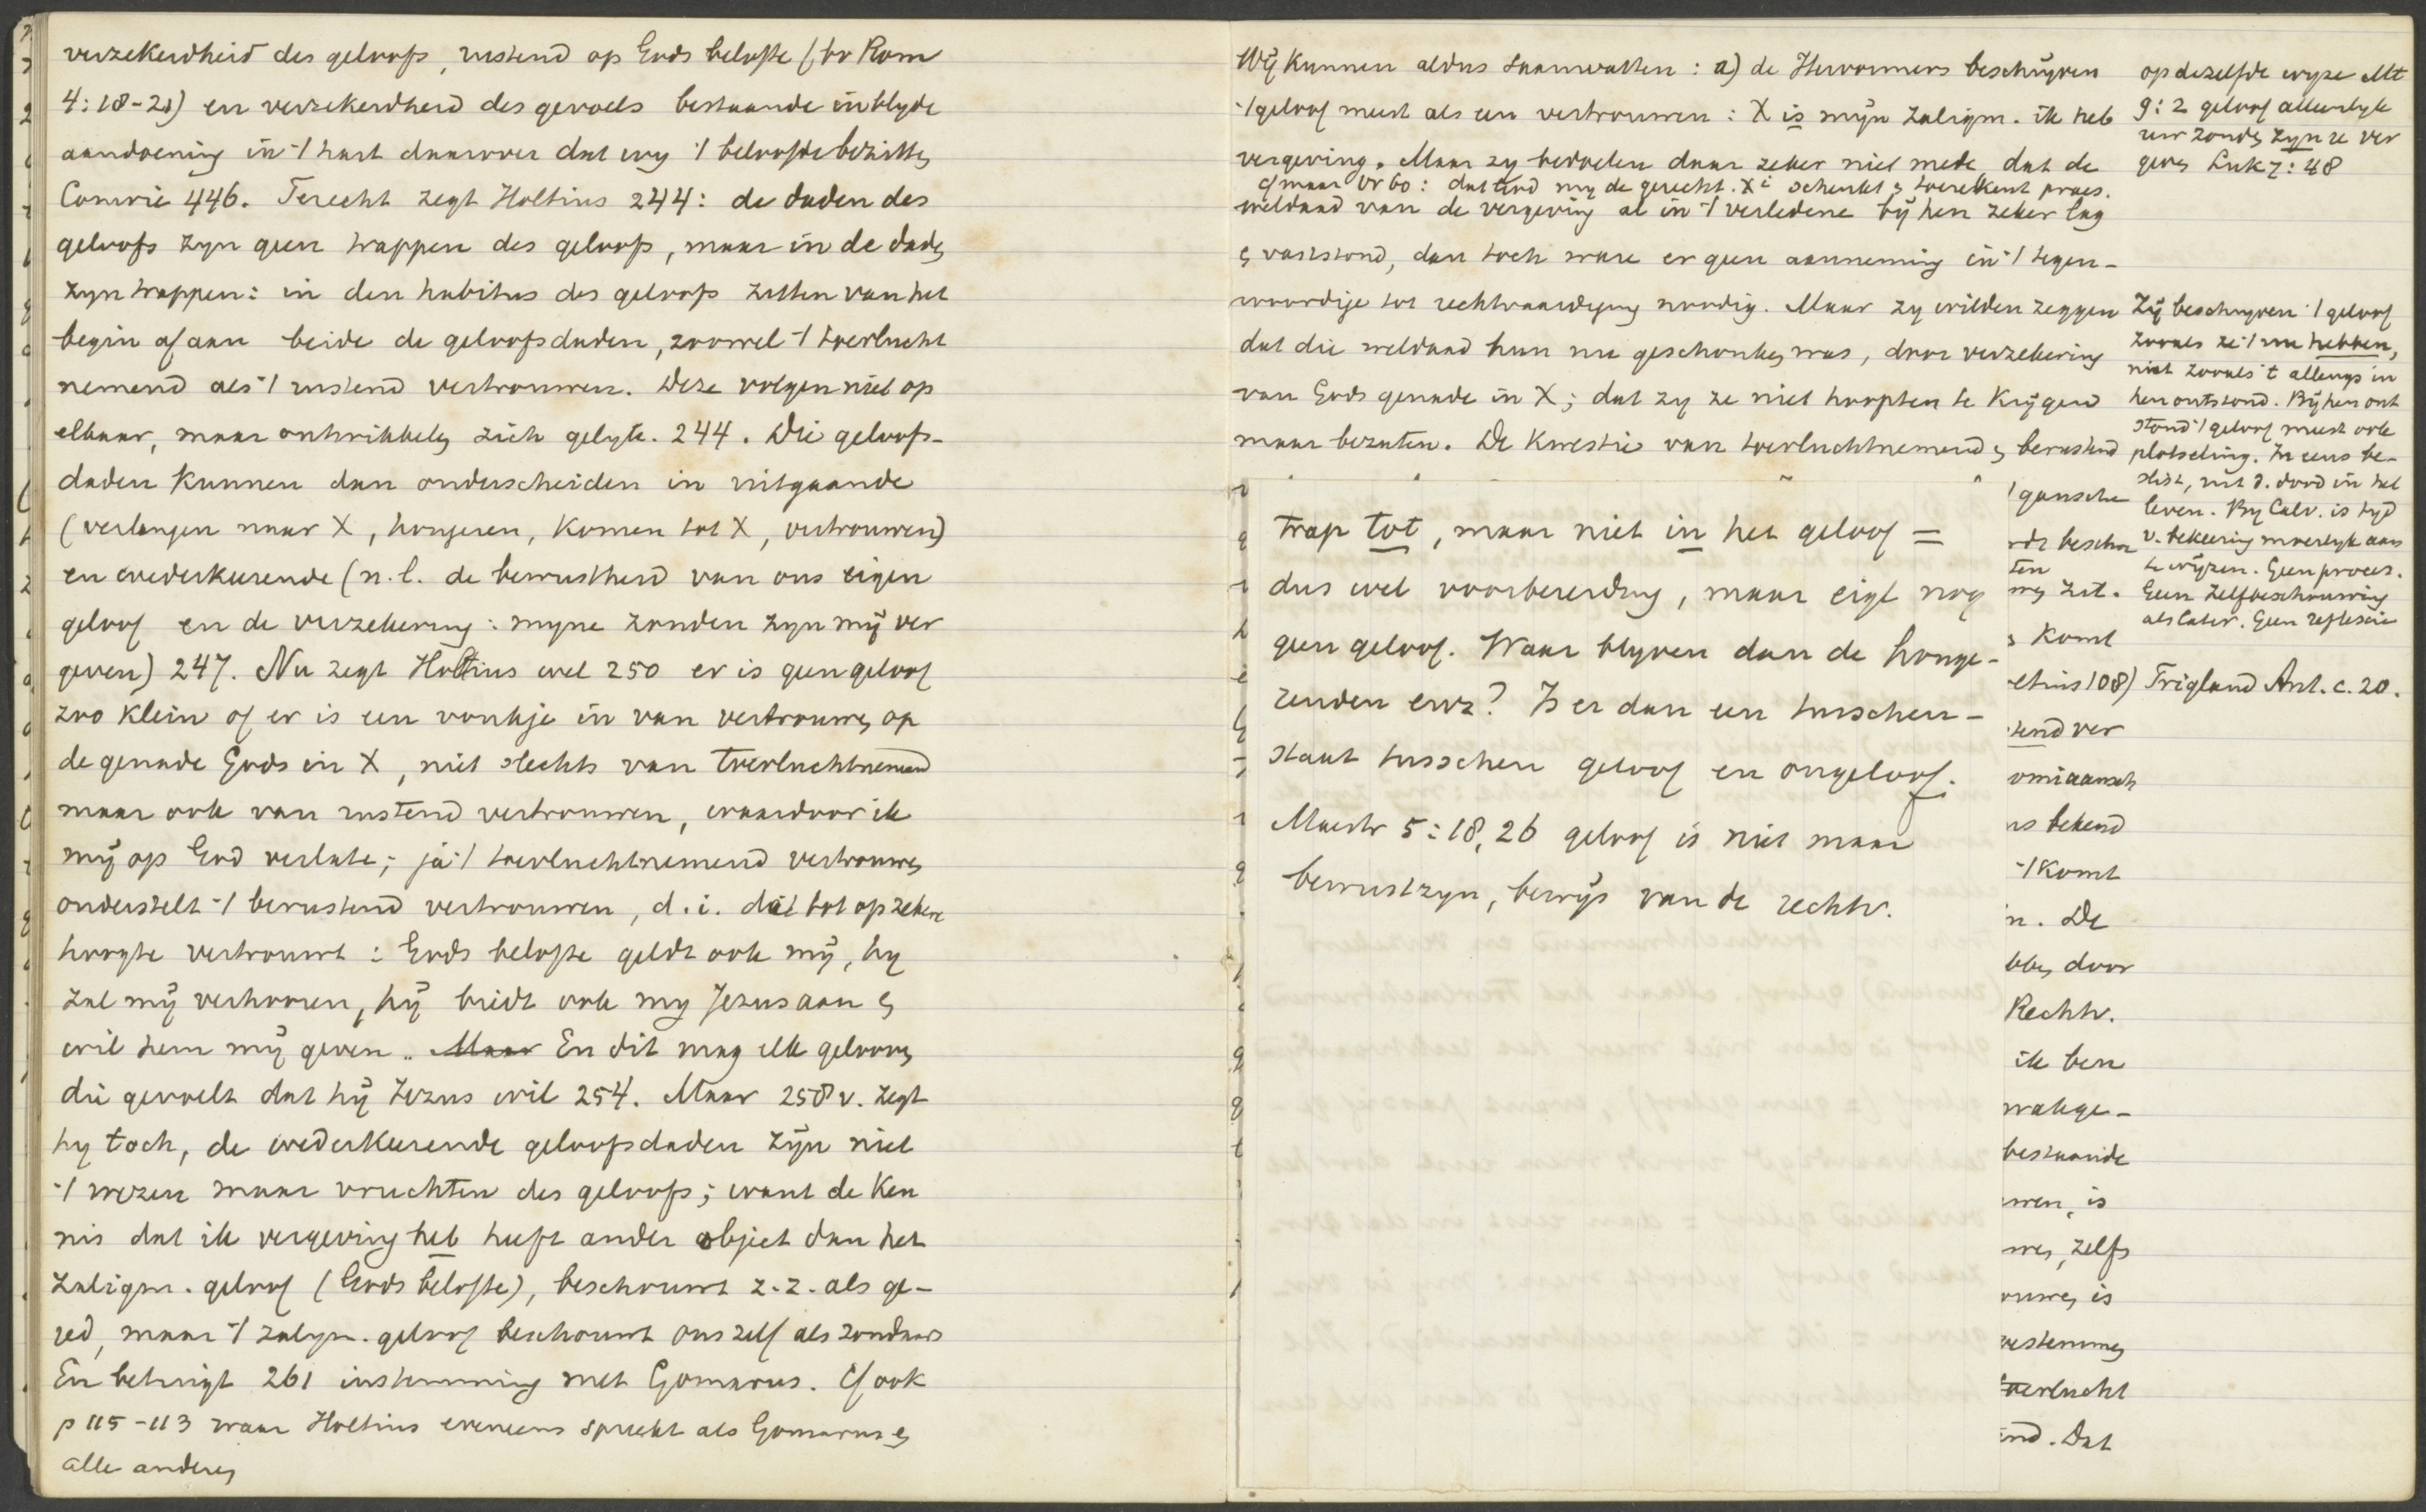 verzekerdheid des geloofs, rustend op Gods belofte (bv Rom
4:18-21) en verzekerdheid des gevoels bestaande in blyde
aandoening in 't hart daarover dat wy 't beloofde bezitten
Comrie 446. Terecht zegt Holtius 244: de daden des
geloofs zyn geen trappen des geloofs, maar in de daden
zyn trappen: in den habitus des geloofs zitten van het
begin af aan beide de geloofsdaden, zoowel 't toevlucht
nemend als 't rustend vertrouwen. Deze volgen niet op
elkaar, maar ontwikkelen zich gelyk. 244. Die geloofs-
daden kunnen dan onderscheiden in uitgaande
(verlangen naar X, hongeren, komen tot X, vertrouwen)
en wederkeerende (n.l. de bewustheid van ons eigen
geloof en de verzekering: myne zonden zyn mij ver
geven) 247. Nu zegt Holtius wel 250 er is geen geloof
zoo klein of er is een vonkje in van vertrouwen op
de genade Gods in X, niet slechts van toevluchtnemend
maar ook van rustend vertrouwen, waardoor ik
mij op God verlate; ja 't toevluchtnemend vertrouwen
onderstelt 't berustend vertrouwen, d.i. dat tot op zekere
hoogte vertrouwt: Gods belofte geldt ook mij, hy
zal mij verhooren, hij biedt ook my Jezus aan en
wil hem mij geven. Maar En dit mag elk gelooven
die gevoelt dat hij Jezus wil 254. Maar 258 v. zegt
hy toch, de wederkeerende geloofsdaden zijn niet
't wezen maar vruchten des geloofs; want de ken
nis dat ik vergeving heb heeft ander object dan het
zaligm. geloof (Gods belofte), beschouwt z.z. als ge-
red, maar 't zaligm. geloof beschouwt ons zelf als zondaars
En betuigt 261 instemming met Gomarus. Cf ook
p 115-113 waar Holtius eveneens spreekt als Gomarus en
alle anderen
Wij kunnen aldus saamvatten: a) de Hervormers beschrijven
't geloof meest als een vertrouwen: X is mijn zaligm. ik heb
vergeving. Maar zy bedoelen daar zeker niet mede dat de
cf maar Vr 60: dat God my de gerecht. Xi schenkt en toerekent praes.
weldaad van de vergeving al in 't verledene bij hen zeker lag
en vaststond, dan toch ware er geen aanneming in 't tegen-
woordige tot rechtvaardiging noodig. Maar zy wilden zeggen
dat die weldaad hun nu geschonken was, door verzekering
van Gods genade in X; dat zy ze niet hoopten te krijgen
maar bezaten. De kwestie van toevluchtnemend en berustend
op dezelfde wyze Mt
9:2 geloof alleenlyk
uw zonden zyn u ver
geven Luk 7:48
Zij beschryven 't geloof
zooals ze 't nu hebben,
niet zooals 't allengs in
hen ontstond. Bij hen ont
stond 't geloof meest ook
plotseling. In eens be-
slist, uit d. dood in het
leven. By Calv. is tyd
v. bekeering moeilyk aan
te wijzen. Geen proces.
Geen zelfbeschouwing
als later. Geen reflexie
Trigland Ant. c. 20.
trap tot, maar niet in het geloof =
dus wel voorbereiding, maar eigl nog
geen geloof. Waar blyven dan de honge-
renden enz? Is er dan een tusschen-
staat tusschen geloof en ongeloof.
Maestr 5:18, 26 geloof is niet maar
bewustzyn, bewijs van de rechtv.
't gansche
rdr beschr
ten
zit.
komt
etius 108)
tend ver
omiaansch
us bekend
't komt
n. De
bben door
Rechtv.
ik ben
wakge-
bestaande
wen, is
wen, zelfs
ouwen is
oestemmen
toevlucht
end. Dat